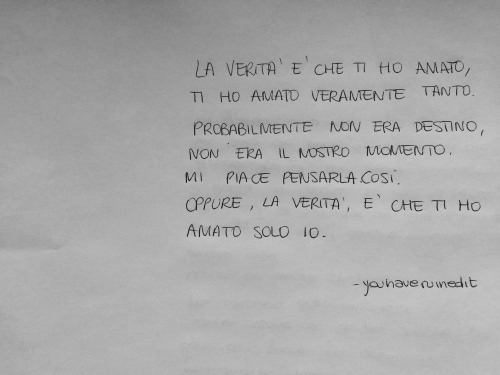 LA VERITA' E' CHE TI HO AMATO,
TI HO AMATO VERAMENTE TANTO.
PROBABILMENTE NON ERA DESTINO,
NON ERA IL NOSTRO MOMENTO.
MI PIACE PENSARLA COSÍ.
OPPURE, LA VERITA', E' CHE TI HO
AMATO SOLO IO.
-youhaveruinedit